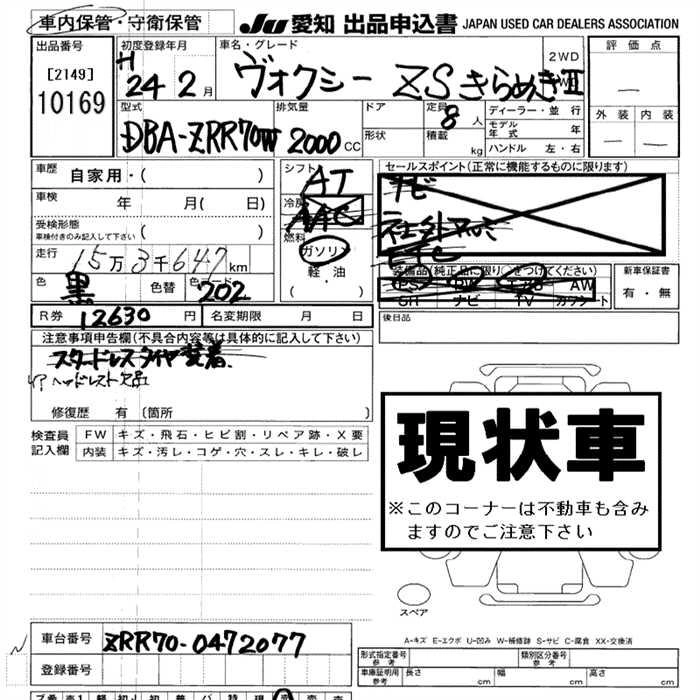 車内保管・守衛保管 JU 愛知 出品申込書 JAPAN USED CAR DEALERS ASSOCIATION
出品番号 初度登録年月 車名・グレード 評価点
[2149] H 24 2月 ヴォクシー ZSきらめきⅡ 2WD
10169
型式 排気量 ドア 定員 8人 ディーラー・並行 外装 内装
DBA-ZRR70W 2000cc 形状 積載 kg モデル年式 年
ハンドル 左・右
車歴 自家用・( )
シフト AT
セールスポイント(正常に機能するものに限ります)
車検 年 月( 日)
冷房 AAC
ナビ
受検形態
車検付きのみ記入して下さい ( )
燃料
ETC
走行 15万3千647km
ガソリン
軽・油
( )
装備品(純正品に限り○をつけてください) 新車保証書
PS PW AW
SH ナビ TV カワシート
有・無
色 黒 色替 色コード 202
R券 12630円 名変期限 月 日
後日品
注意事項申告欄(不具合内容等は具体的に記入して下さい)
スタッドレスタイヤ装着
ヘッドレスト欠品
修復歴 有 (箇所 )
検査員記入欄 FW キズ・飛石・ヒビ割・リペア跡・X要
内装 キズ・汚レ・コゲ・穴・スレ・キレ・破レ
現状車
※このコーナーは不動車も含み
ますのでご注意下さい
スペア
A-キズ E-エクボ U-凹み W-補修跡 S-サビ C-腐食 XX-交換済
車台番号 ZRR70-0472077
登録番号
形式指定番号 参考 類別区分番号 参考
車庫証明用 参考 長さ cm 幅 cm 高さ cm